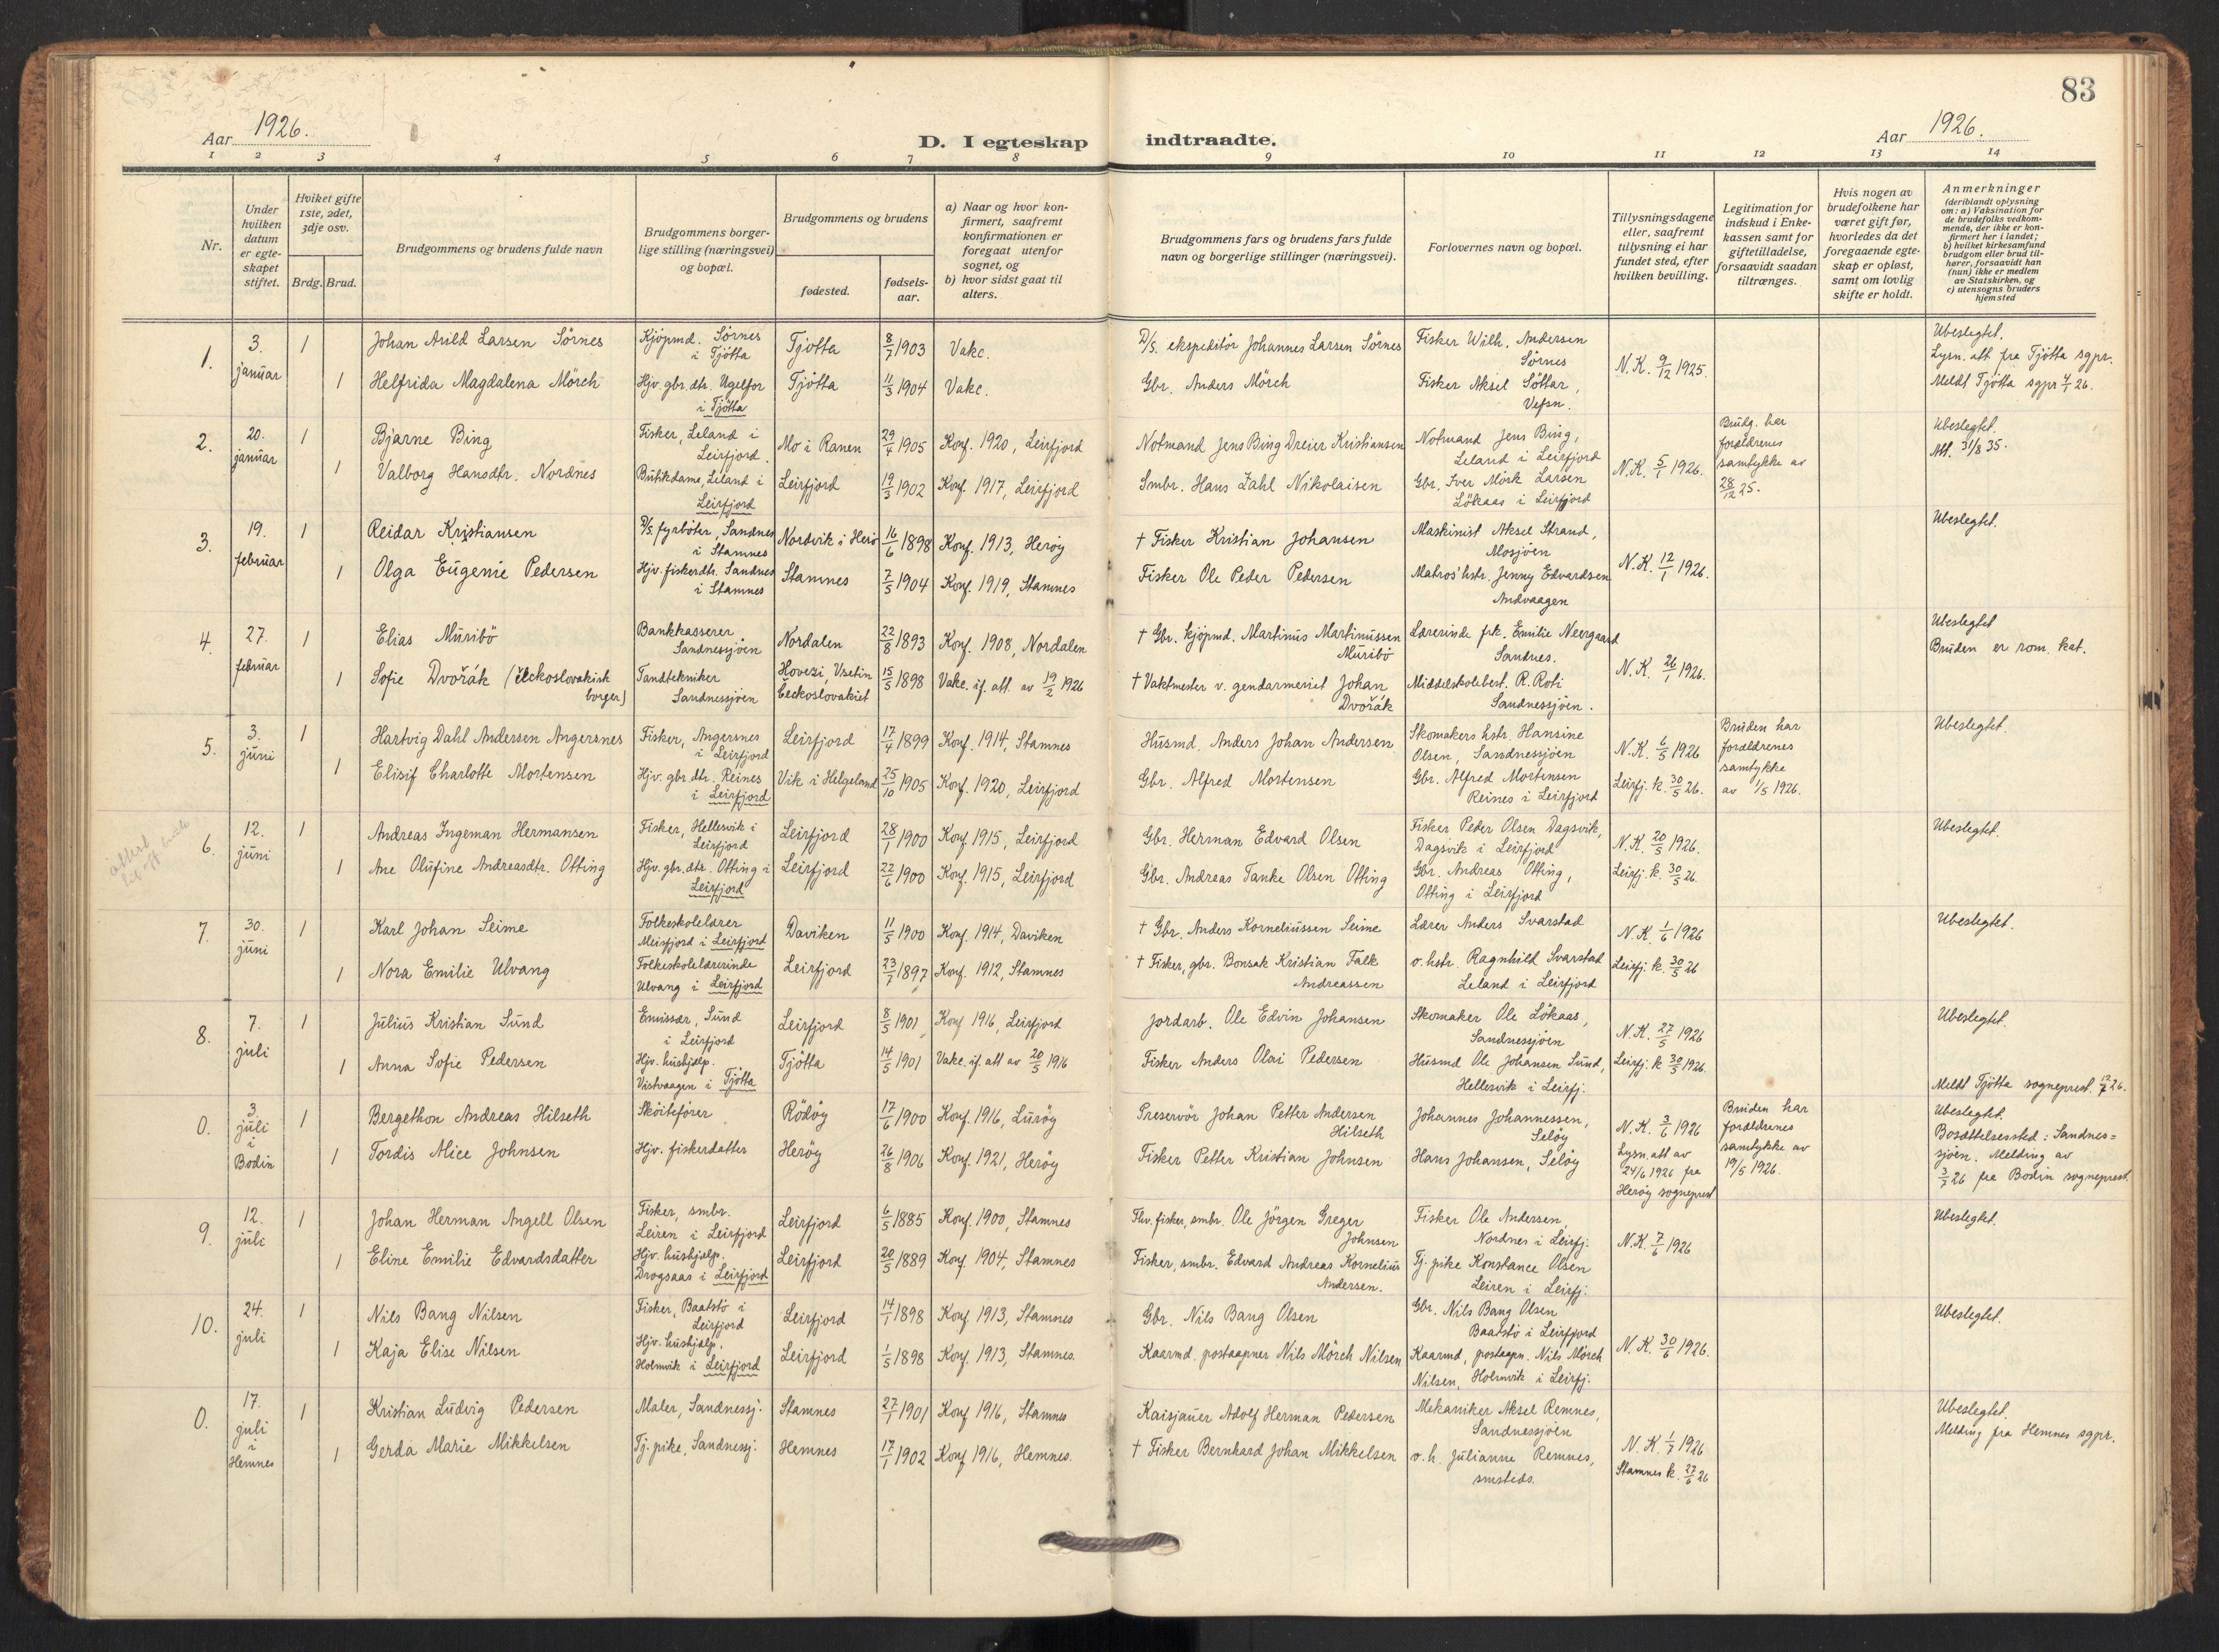 83
Aar 1926.
D. I egteskap indtraadte.
Aar 1926.
1 2 3 4 5 6 7 8 9 10 11 12 13 14
Nr.
Under hvilken datum er egte-skapet stiftet.
Hviket gifte 1ste, 2det, 3dje osv.
Brdg. Brud.
Brudgommens og brudens fulde navn
Brudgommens borger-lige stilling (næringsvei) og bopæl.
Brudgommens og brudens
fødested.
fødsels-aar.
a) Naar og hvor kon-firmert, saafremt konfirmationen er foregaat utenfor sognet, og
b) hvor sidst gaat til alters.
Brudgommens fars og brudens fars fulde navn og borgerlige stillinger (næringsvei).
Forlovernes navn og bopæl.
Tillysningsdagene eller, saafremt tillysning ei har fundet sted, efter hvilken bevilling.
Legitimation for indskud i Enke-kassen samt for giftetilladelse, forsaavidt saadan tiltrænges.
Hvis nogen av brudefolkene har været gift før, hvorledes da det foregaaende egte-skap er opløst, samt om lovlig skifte er holdt.
Anmerkninger (deriblandt oplysning om: a) Vaksination for de brudefolks vedkom-mende, der ikke er kon-firmert her i landet; b) hvilket kirkesamfund brudgom eller brud til-hører, forsaavidt han (hun) ikke er medlem av Statskirken, og c) utensogns bruders hjemsted
1. 3. januar 1 Johan Arild Larsen Sörnes Kjöpmd. Sörnes i Tjötta Tjötta 8/7 1903 Vakc. D/S. ekspeditör Johannes Larsen Sörnes Fisker Wilh. Andersen Sörnes N.K. 9/12 1925. Ubeslegtet. Lysn. att. fra Tjötta sgpr.
1 Helfrida Magdalena Mörch Hjv. gbr. dtr. Ugelfor i Tjötta Tjötta 11/3 1904 Vakc. Gbr. Anders Mörch Fisker Aksel Söttar, Vefsn. Meldt Tjötta sgpr 4/1 26.
2. 20. januar 1 Bjarne Bing Fisker, Leland i Leirfjord. Mo i Ranen 29/4 1905 Konf. 1920, Leirfjord Notmand Jens Bing Dreier Kristiansen Notmand Jens Bing, Leland i Leirfjord N.K. 5/1 1926. Brudg. har forældrenes samtykke av 28/12 25. Ubeslegtet. Att. 31/8 35.
1 Valborg Hansdtr. Nordnes Butikdame, Leland i Leirfjord Leirfjord 19/3 1902 Konf. 1917, Leirfjord Smbr. Hans Zahl Nikolaisen Gbr. Iver Mörk Larsen Lökaas i Leirfjord
3. 19. februar 1 Reidar Kristiansen D/S. fyrböter, Sandnes i Stamnes Nordvik i Herö 16/6 1898 Konf. 1913, Heröy † Fisker Kristian Johansen Maskinist Aksel Strand, Mosjöen N.K. 12/1 1926. Ubeslegtet.
1 Olga Eugenie Pedersen Hjv. fiskerdtr. Sandnes i Stamnes Stamnes 7/5 1904 Konf. 1919, Stamnes Fisker Ole Peder Pedersen Matros' hstr. Jenny Edvardsen Andvaagen
4. 27. februar 1 Elias Muribö Bankkasserer Sandnessjöen Nordalen 22/8 1893 Konf. 1908, Nordalen † Gbr. kjöpmd. Martinus Martinussen Muribö Lærerinde frk. Emilie Neergaard Sandnes. N.K. 26/1 1926. Ubeslegtet Bruden er rom. kat.
1 Sofie Dvořák (čeckoslovakisk borger) Tandtekniker Sandnessjöen Hovezi, Vsetin Čeckoslovakiet 15/5 1898 Vakc. if. att. av 19/2 1926 † Vaktmester v. gendarmeriet Johan Dvořák Middelskolebest. R. Roti Sandnessjöen.
5. 3. juni 1 Hartvig Dahl Andersen Angersnes Fisker, Angersnes i Leirfjord Leirfjord 17/4 1899 Konf. 1914, Stamnes Husmd. Anders Johan Andersen Skomakers hstr. Hansine Olsen, Sandnessjöen N.K. 6/5 1926 Leirfj. k. 30/5 26. Bruden har forældrenes samtykke av 1/5 1926. Ubeslegtet.
1 Elisif Charlotte Mortensen Hjv. gbr. dtr. Reines i Leirfjord Vik i Helgeland 25/10 1905 Konf. 1920, Leirfjord Gbr. Alfred Mortensen Gbr. Alfred Mortensen Reines i Leirfjord
6. 12. juni 1 Andreas Ingeman Hermansen Fisker, Hellesvik i Leirfjord Leirfjord 28/1 1900 Konf. 1915, Leirfjord Gbr. Herman Edvard Olsen Fisker Peder Olsen Dagsvik, Dagsvik i Leirfjord N.K. 20/5 1926. Leirfj. k. 30/5 26. Ubeslegtet.
1 Ane Olufine Andreasdtr. Otting Hjv. gbr. dtr. Otting i Leirfjord Leirfjord 22/6 1900 Konf. 1915, Leirfjord Gbr. Andreas Tanke Olsen Otting Gbr. Andreas Otting, Otting i Leirfjord
7. 30. juni 1 Karl Johan Seime Folkeskolelærer Meisfjord i Leirfjord Daviken 11/5 1900 Konf. 1914, Daviken † Gbr. Anders Korneliussen Seime Lærer Anders Svarstad N.K. 1/6 1926 Leirfj. k. 30/5 26 Ubeslegtet.
1 Nora Emilie Ulvang Folkeskolelærerinde Ulvang i Leirfjord Leirfjord 23/7 1897 Konf. 1912, Stamnes † Fisker, gbr. Bonsak Kristian Falk Andreassen o. hstr. Ragnhild Svarstad Leland i Leirfjord
8. 7. juli 1 Julius Kristian Sund Emissær, Sund i Leirfjord Leirfjord 8/5 1901 Konf 1916, Leirfjord Jordarb. Ole Edvin Johansen Skomaker Ole Lökaas, Sandnessjöen N.K. 27/5 1926 Leirfj. k 30/5 1926. Ubeslegtet.
1 Anna Sofie Pedersen Hjv. hushjælp. Vistvaagen i Tjötta Tjötta 14/5 1901 Vakc. if. att av 20/5 1916 Fisker Anders Olai Pedersen Husmd Ole Johansen Sund, Hellesvik i Leirfj. Meldt Tjötta sogneprest. 12/7 26.
0. 3. juli i Bodin 1 Bergethon Andreas Hilseth Sköitefører Rödöy 17/6 1900 Konf. 1916, Luröy Preservör Johan Petter Andersen Hilseth Johannes Johannessen, Selöy N.K. 3/6 1926 Lysn. att av 24/6 1926 fra Heröy sogneprest Bruden har forældrenes samtykke av 19/5 1926. Ubeslegtet. Bosættelsessted: Sandnes=sjöen. Melding av 3/7 26 fra Bodin sogneprest.
1 Tordis Alice Johnsen Hjv. fiskerdatter Heröy 26/8 1906 Konf. 1921, Heröy Fisker Petter Kristian Johnsen Hans Johansen, Selöy
9. 12. juli 1 Johan Herman Angell Olsen Fisker, smbr. Leiren i Leirfjord Leirfjord 6/5 1885 Konf. 1900, Stamnes Fhv. fisker, smbr. Ole Jörgen Greger Johnsen Fisker Ole Andersen, Nordnes i Leirfj. N.K. 7/6 1926 Ubeslegtet.
1 Eline Emilie Edvardsdatter Hjv. hushjælp. Drogsaas i Leirfjord Leirfjord 20/5 1889 Konf. 1904, Stamnes Fisker, smbr. Edvard Andreas Kornelius Andersen. Tj. pike Konstance Olsen Leiren i Leirfj.
10. 24. juli 1 Nils Bang Nilsen Fisker, Baatstö i Leirfjord Leirfjord 14/1 1898 Konf. 1913, Stamnes Gbr. Nils Bang Olsen Gbr. Nils Bang Olsen Baatstö i Leirfjord N.K. 30/6 1926. Ubeslegtet.
1 Kaja Elise Nilsen Hjv. hushjælp. Holmvik i Leirfjord Leirfjord 1/5 1898 Konf. 1913, Stamnes. Kaarmd. postaapner Nils Mörch Nilsen Kaarmd, postaapn. Nils Mörch Nilsen, Holmvik i Leirfj.
0. 17. juli i Hemnes 1 Kristian Ludvig Pedersen Maler, Sandnessj. Stamnes 27/1 1901 Konf 1916, Stamnes Kaisjauer Adolf Herman Pedersen Mekaniker Aksel Remnes, Sandnessjöen N.K. 1/7 1926 Stamnes k. 27/6 26 Ubeslegtet. Melding fra Hemnes sgpr.
1 Gerda Marie Mikkelsen Tj. pike, Sandnessj. Hemnes 17/1 1902 Konf 1916, Hemnes. † Fisker Bernhard Johan Mikkelsen o. h. Julianne Remnes, smsteds.